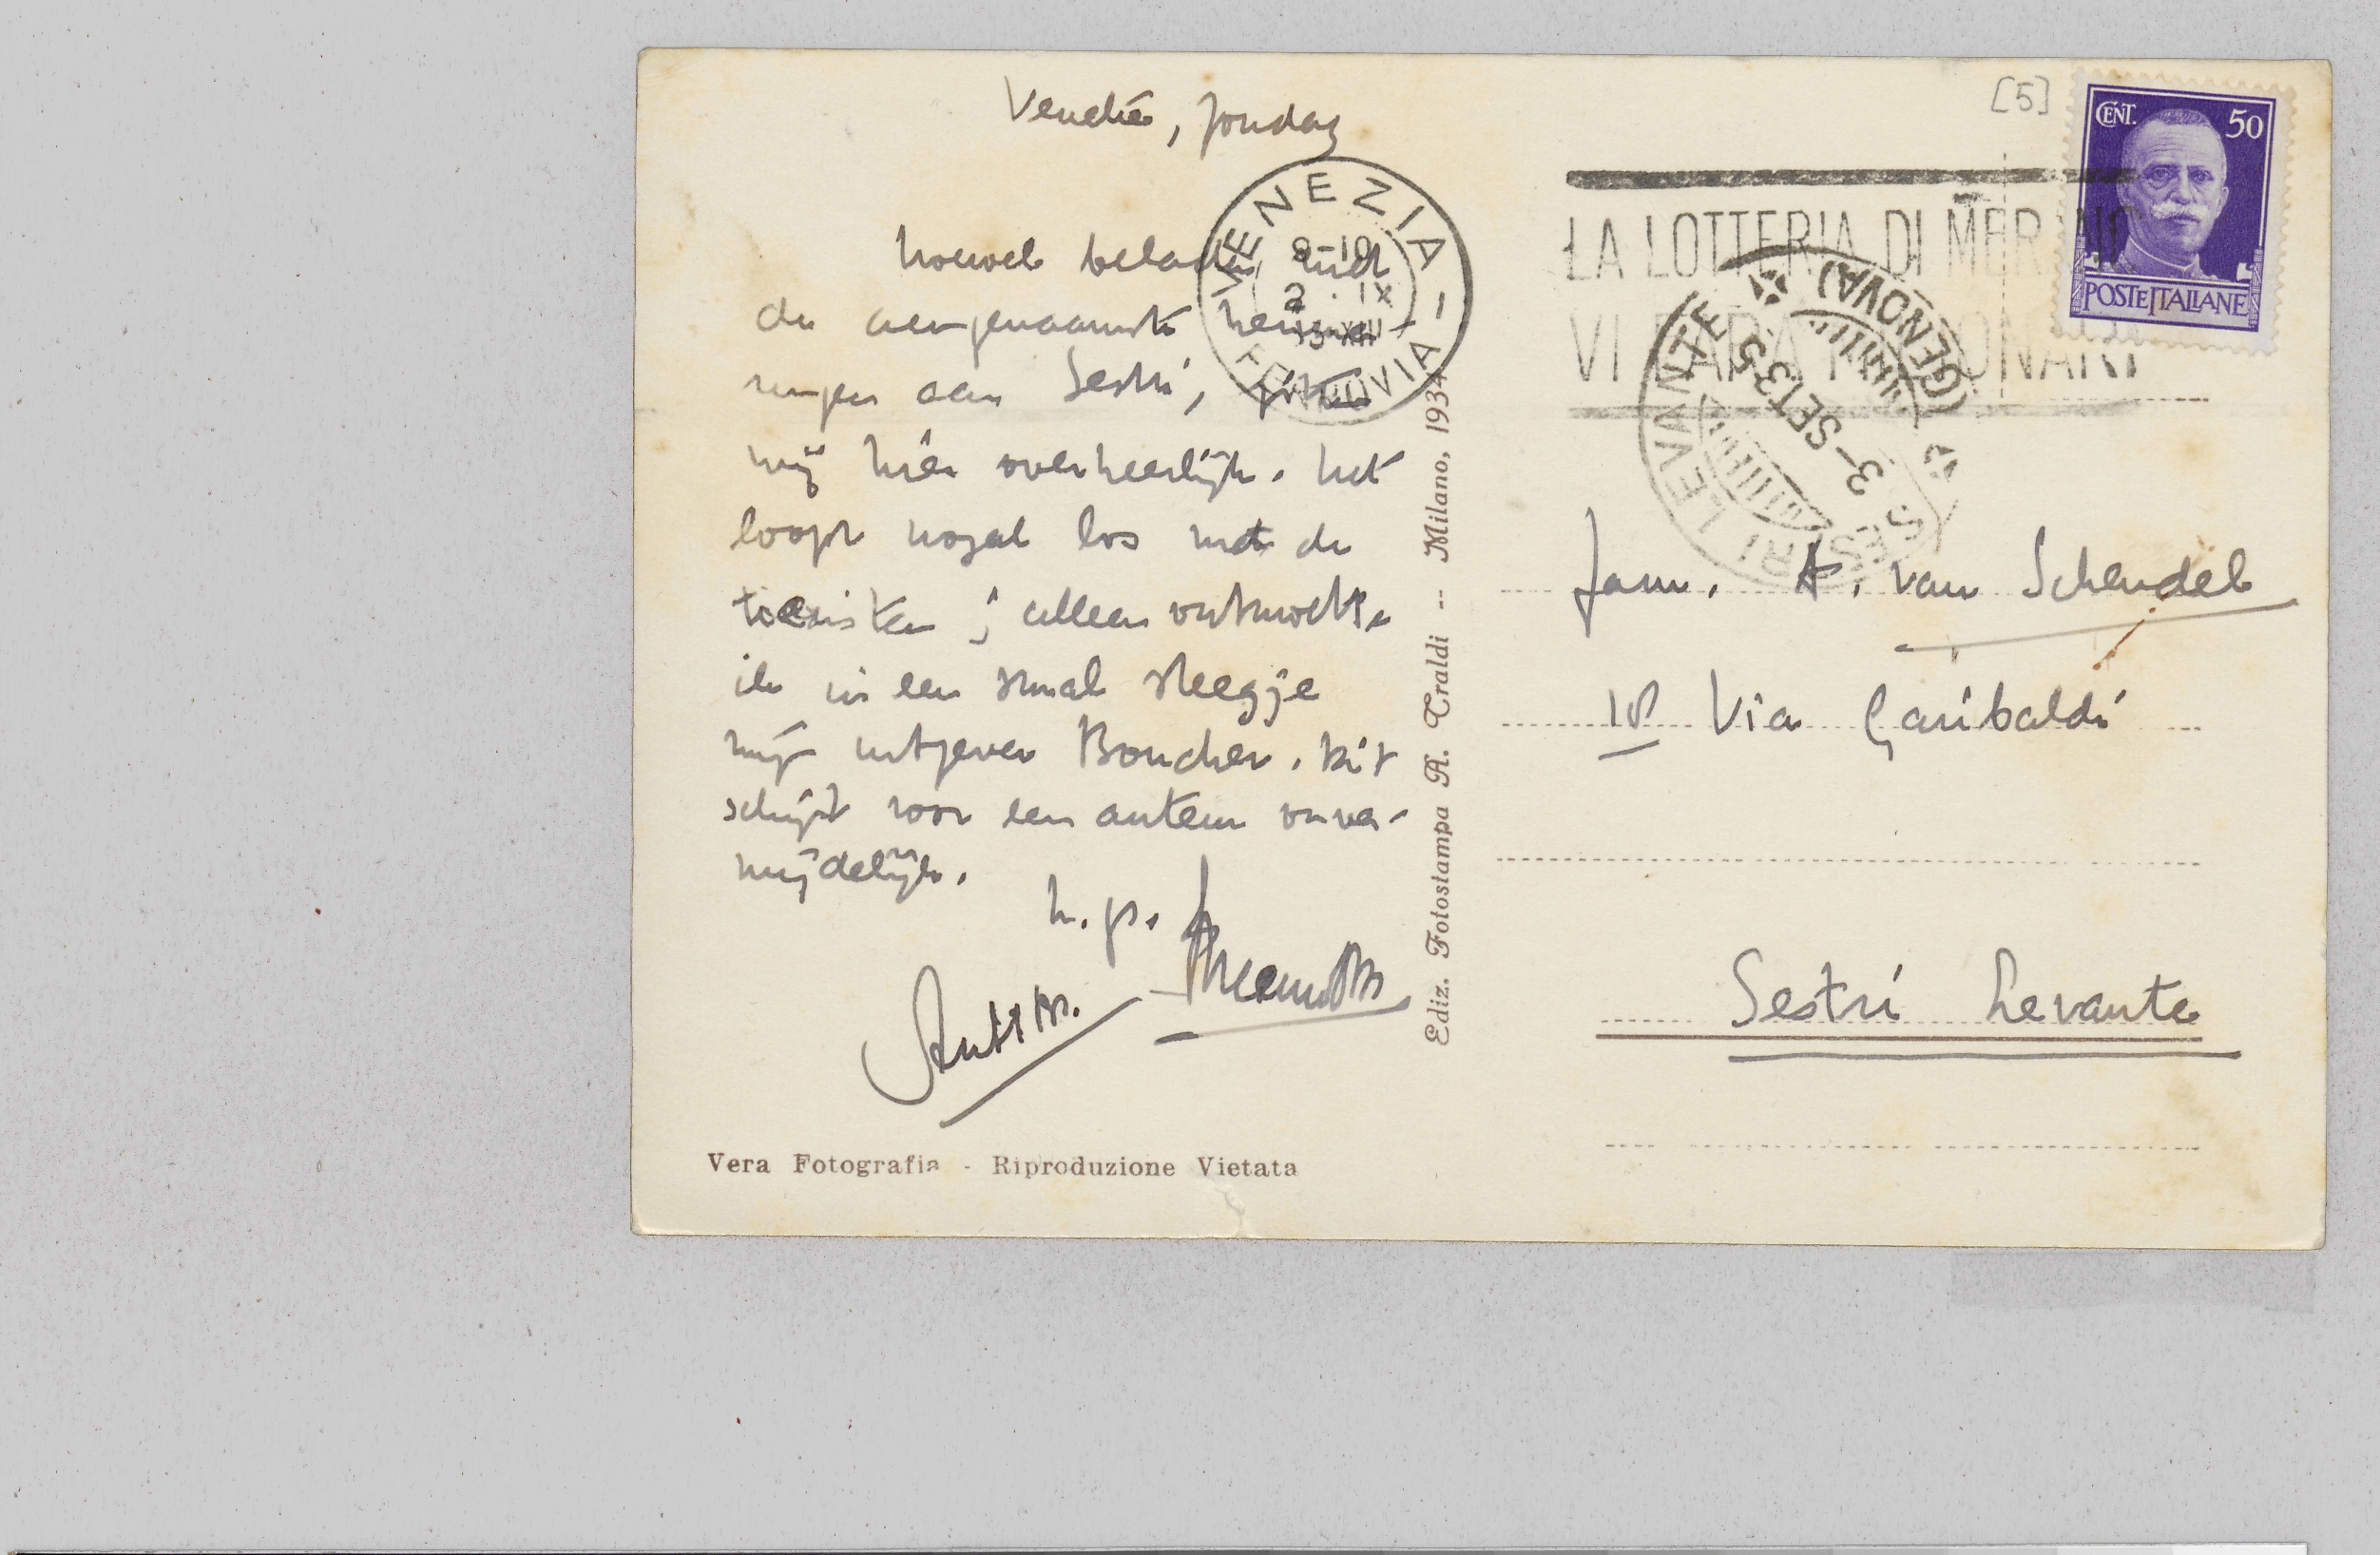 Venetië, Zondag
hoewel beladen met
de aangenaamste herinne-
ringen aan Sestri,
wij hier overheerlijk. Het
loopt nogal los met de
toeristen; alleen ontmoette
ik in een smal steegje
mijn uitgever Boucher. Dit
schijnt voor een auteur onver-
mijdelijk.
h. gr.
Vera Fotografia - Riproduzione Vietata
Ediz. Fotostampa A. Traldi -- Milano, 1934
VENEZIA - FERROVIA
8-19
2 · IX
XIII
[5]
CENT. 50
POSTE ITALIANE
LA LOTTERIA DI MERANO
SESTRI LEVANTE (GENOVA)
3-SET 35
Fam. A. van Schendel
18 Via Garibaldi
Sestri Levante